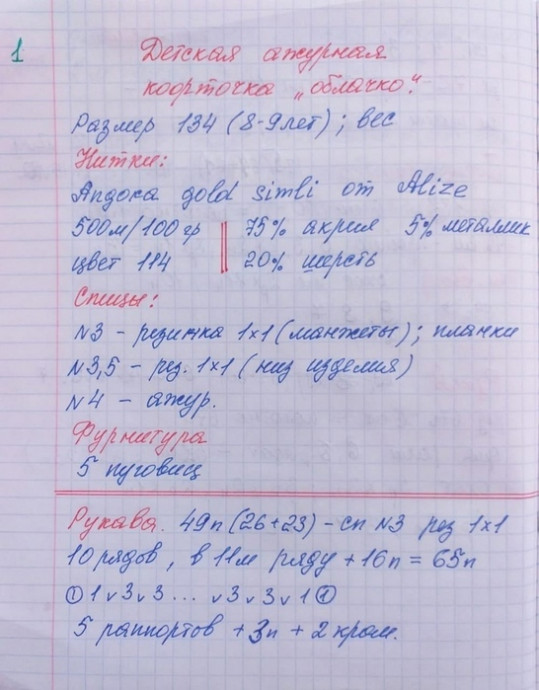 1
Детская ажурная
кофточка „облачко".
Размер 134 (8-9лет); вес
Нитки:
Ангора gold simli от Alize
500м/100гр 75% акрил 5% металлик
цвет 114 20% шерсть
Спицы:
N3 – резинка 1×1 (манжеты); планки
N3,5 – рез. 1×1 (низ изделия)
N4 – ажур.
Фурнитура
5 пуговиц
Рукава. 49п (26+23) – сп N3 рез 1×1
10 рядов, в 11м ряду +16п = 65п
① 1 v 3 v 3 ... v 3 v 3 v 1 ①
5 раппортов + 3п + 2 кром.